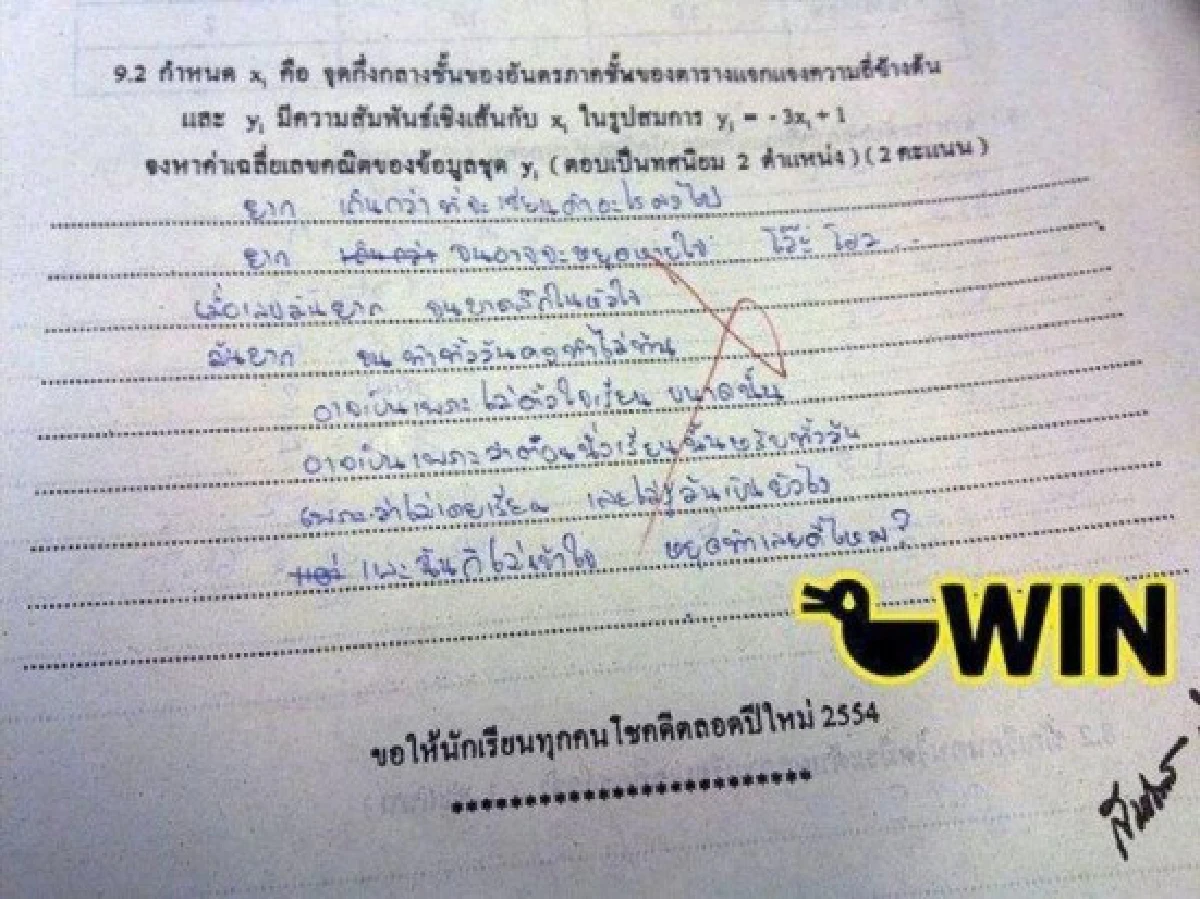 9.2 กำหนด xᵢ คือ จุดกึ่งกลางชั้นของอันตรภาคชั้นของตารางแจกแจงความถี่ข้างต้น
และ yᵢ มีความสัมพันธ์เชิงเส้นกับ xᵢ ในรูปสมการ yᵢ = - 3xᵢ + 1
จงหาค่าเฉลี่ยเลขคณิตของข้อมูลชุด yᵢ ( ตอบเป็นทศนิยม 2 ตำแหน่ง ) ( 2 คะแนน )
ยาก เกินกว่าที่จะเขียนคำอะไรลงไป
ยาก เกินกว่า จนอาจจะหยุดหายใจ โว๊ะ โอว...
เมื่อเลขมันยาก จนยากลึกในหัวใจ
มันยาก จนทำทั้งวันคงทำไม่ทัน
อาจเป็นเพราะไม่ตั้งใจเรียน ขนาดนั้น
อาจเป็นเพราะว่าตอนนั่งเรียนนั้นหลับทั้งวัน
เพราะว่าไม่เคยเรียน และไม่รู้มันเป็นยังไง
และฉันก็ไม่เข้าใจ หยุดทำเลยดีไหม?
WIN
ขอให้นักเรียนทุกคนโชคดีตลอดปีใหม่ 2554
*************************